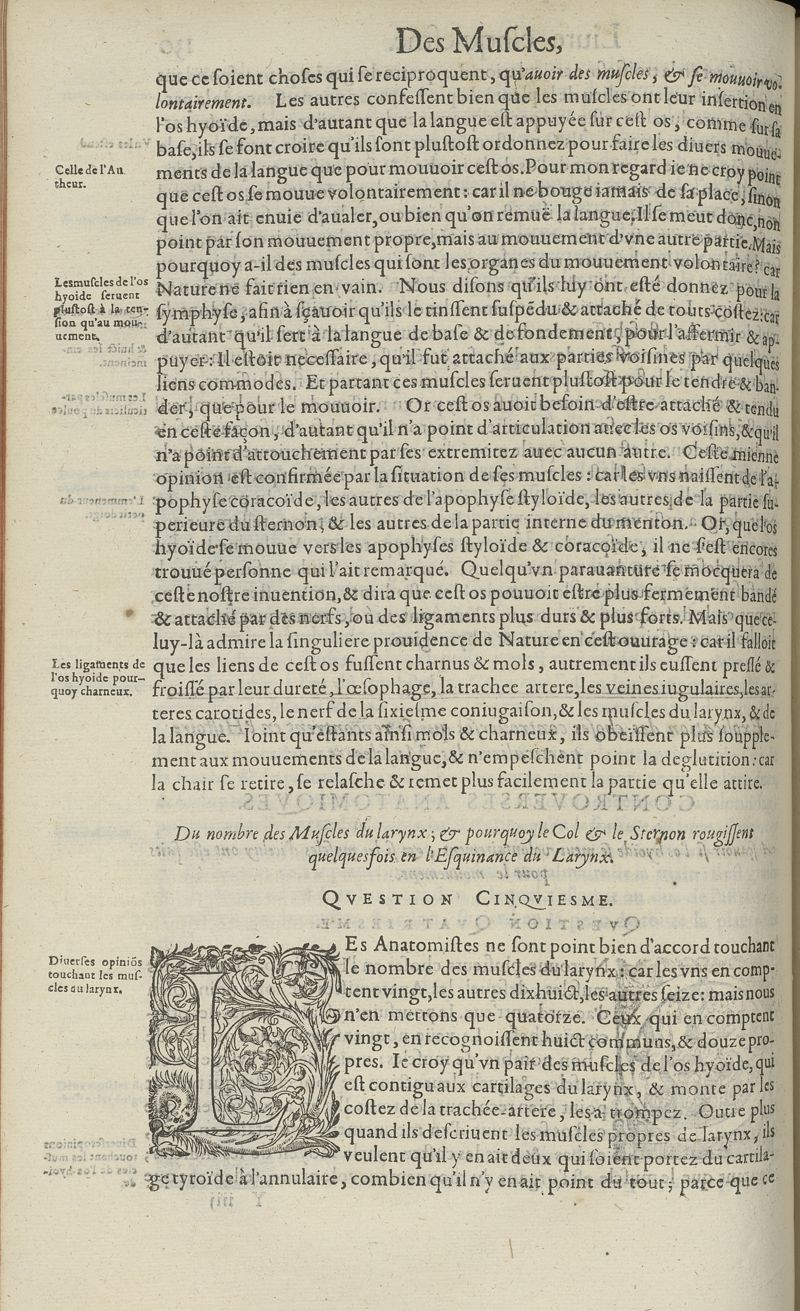 Des Muſcles,
que ce ſoient choſes qui ſe reciproquent, qu'auoir des muſcles, & ſe mouuoir vo-
lontairement. Les autres confeſſent bien que les muſcles ont leur inſertion en
l'os hyoïde, mais d'autant que la langue eſt appuyée ſur ceſt os, comme ſur ſa
baſe, ils ſe font croire qu'ils ſont pluſtoſt ordonnez pour faire les diuers mouue-
Celle de l'Au
theur.
ments de la langue que pour mouuoir ceſt os. Pour mon regard ie ne croy point
que ceſt os ſe mouue volontairement: car il ne bouge iamais de ſa place, ſinon
que l'on ait enuie d'aualer, ou bien qu'on remuë la langue, Il ſe meut donc, non
point par ſon mouuement propre, mais au mouuement d'vne autre partie. Mais
pourquoy a-il des muſcles qui ſont les organes du mouuement volontaire? car
Les muſcles de l'os
hyoide ſeruent
pluſtoſt à la ten-
ſion qu'au mou-
uement.
Nature ne fait rien en vain. Nous diſons qu'ils luy ont eſté donnez pour la
ſymphyſe, afin à ſçauoir qu'ils le tinſſent ſuſpēdu & attaché de touts coſtez: car
d'autant qu'il ſert à la langue de baſe & de fondement, pour l'affermir & ap-
puyer: Il eſtoit neceſſaire, qu'il fut attaché aux parties voiſines par quelques
liens commodes. Et partant ces muſcles ſeruent pluſtoſt pour le tendre & ban-
der, que pour le mouuoir. Or ceſt os auoit beſoin d'eſtre attaché & tendu
en ceſte façon, d'autant qu'il n'a point d'articulation auec les os voiſins, & qu'il
n'a point d'attouchement par ſes extremitez auec aucun autre. Ceſte mienne
opinion eſt confirmée par la ſituation de ſes muſcles: car les vns naiſſent de l'a-
pophyſe coracoïde, les autres de l'apophyſe ſtyloïde, les autres de la partie ſu-
perieure du ſternon, & les autres de la partie interne du menton. Or, que l'os
hyoïde ſe mouue vers les apophyſes ſtyloïde & coracoïde, il ne ſ'eſt encores
trouué perſonne qui l'ait remarqué. Quelqu'vn parauanture ſe mocquera de
ceſte noſtre inuention, & dira que ceſt os pouuoit eſtre plus fermement bandé
& attaché par des nerfs, ou des ligaments plus durs & plus forts. Mais que ce-
luy-là admire la ſinguliere prouidence de Nature en ceſt ouurage: car il falloit
Les ligaments de
l'os hyoide pour-
quoy charneux.
que les liens de ceſt os fuſſent charnus & mols, autrement ils euſſent preſſé &
froiſſé par leur dureté, l'œſophage, la trachee artere, les veines iugulaires, les ar-
teres carotides, le nerf de la ſixieſme coniugaiſon, & les muſcles du larynx, & de
la langue. Ioint qu'eſtants ainſi mols & charneux, ils obeïſſent plus ſoupple-
ment aux mouuements de la langue, & n'empeſchent point la deglutition: car
la chair ſe retire, ſe relaſche & remet plus facilement la partie qu'elle attire.
Du nombre des Muſcles du larynx; & pourquoy le Col & le Sternon rougiſſent
quelquesfois en l'Eſquinance du Larynx.
QVESTION CINQVIESME.
Diuerſes opiniōs
touchant les muſ-
cles du larynx.
LEs Anatomiſtes ne ſont point bien d'accord touchant
le nombre des muſcles du larynx: car les vns en comp-
tent vingt, les autres dixhuict, les autres ſeize: mais nous
n'en mettrons que quatorze. Ceux qui en comptent
vingt, en recognoiſſent huict communs, & douze pro-
pres. Ie croy qu'vn pair des muſcles de l'os hyoïde, qui
eſt contigu aux cartilages du larynx, & monte par les
coſtez de la trachée-artere, les a trompez. Outre plus
quand ils deſcriuent les muſcles propres de larynx, ils
veulent qu'il y en ait deux qui ſoient portez du cartila-
ge tyroïde à l'annulaire, combien qu'il n'y en ait point du tout; parce que ce